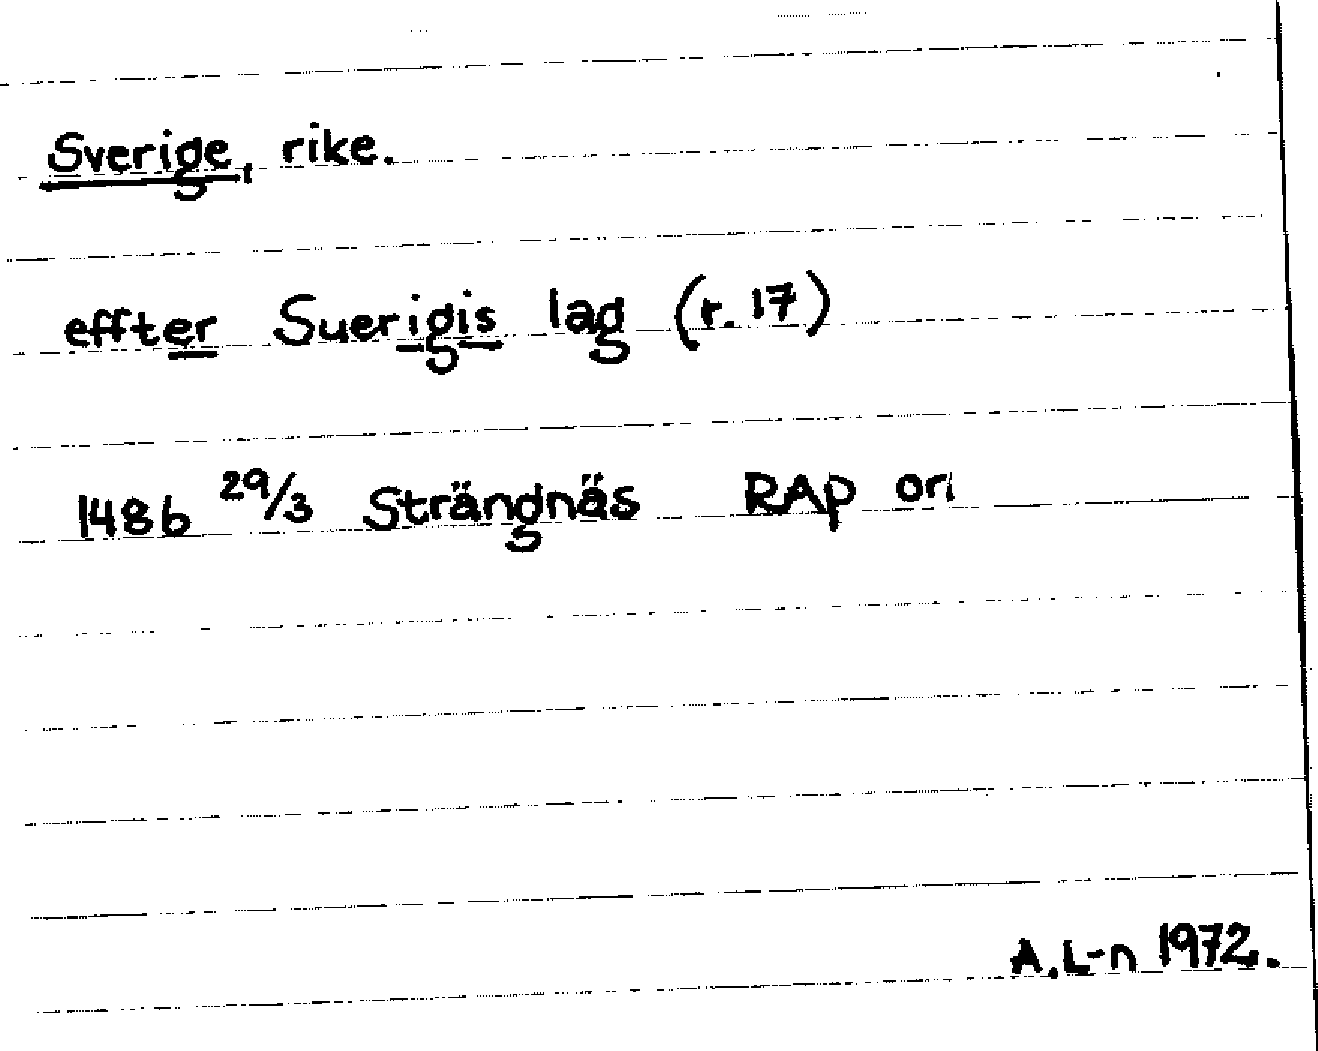 Sverige, rike.
effter Suerigis lag (r. 17)
1486 29/3 Strängnäs RAP ori
A.L-n 1972.